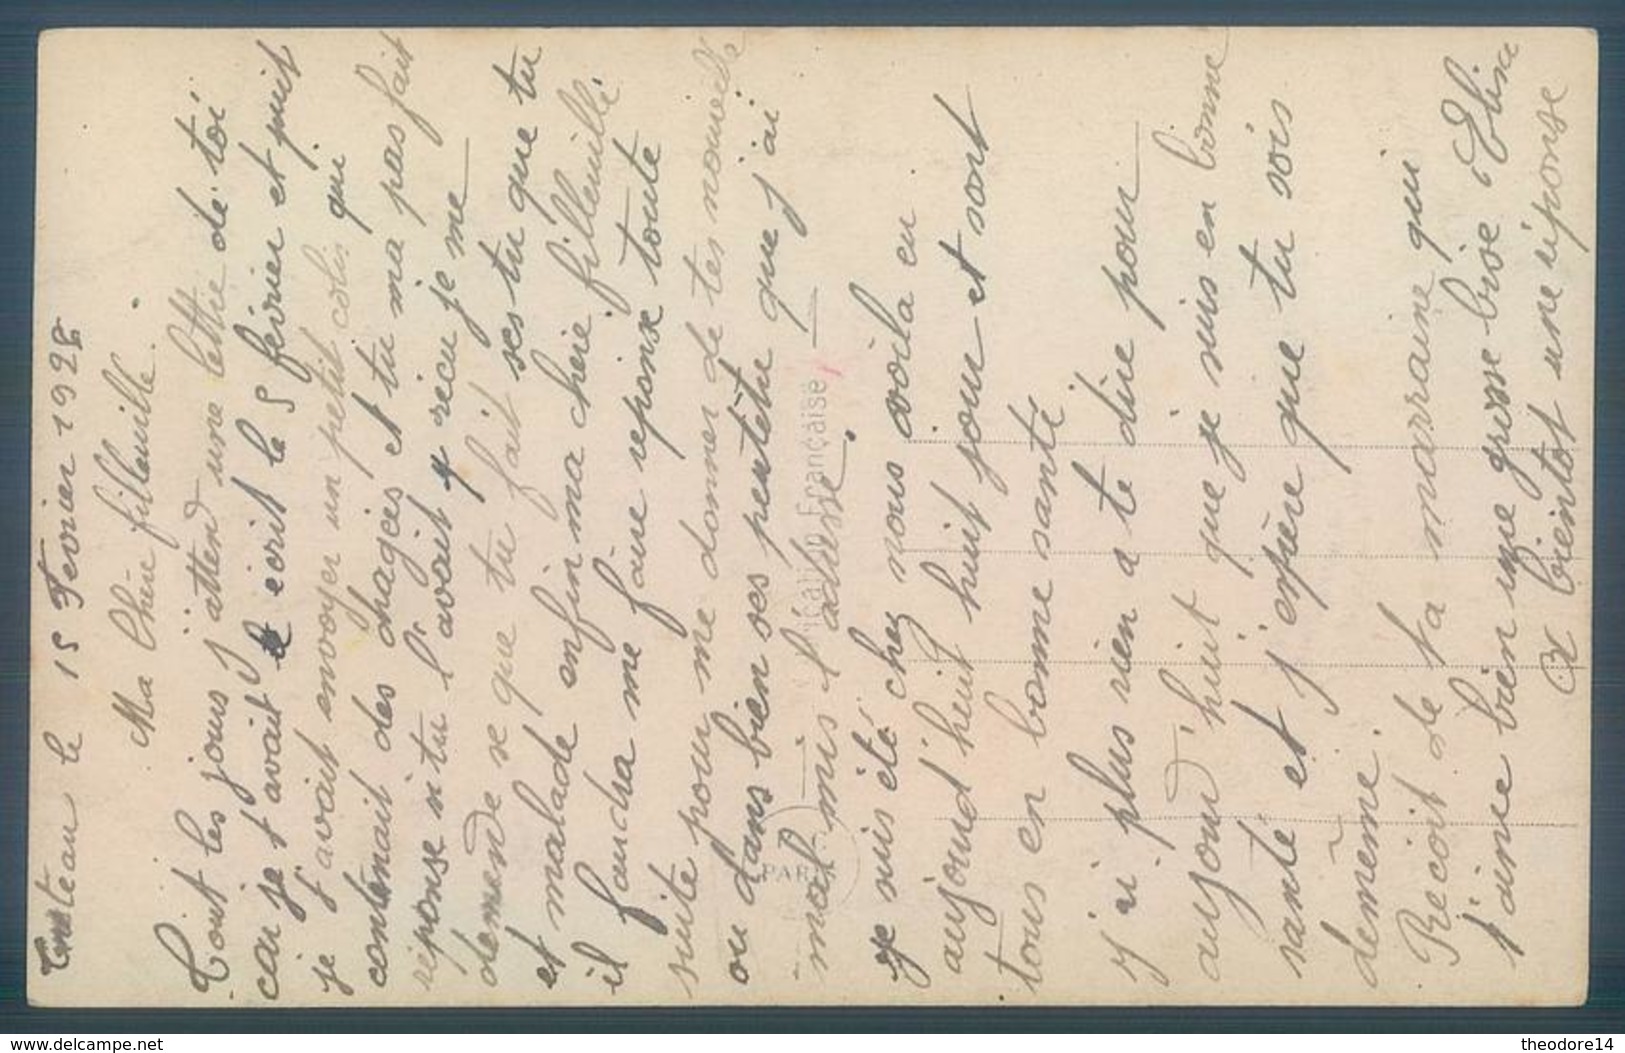 le 15 Fevrier 1928
Ma Chère filleuille.
Tout les jours j'attend une lettre de toi
car je t'avait écrit le 5 février et puit
je t'avait envoyer un petit colis qui
contenait des et tu ma pas fait
réponse n'tu l'avait recu je me
demende se que tu fait ses tu que tu
et malade enfin ma chere filleuille
il faudra me faire reponse toute
suite pour me donner de tes nouvelle
ou dans bien ses peutetre que j'ai
mal mis l'adresse.
je suis été chez nous voila eu
aujourd'heuit huit jour et sont
tous en bonne santé
j'ai plus rien a te dire pour
aujourd'huit que je suis en bonne
santé et j'espère que tu sois
demême.
Recoit de ta marraine qui
t'aime bien une grosse bise Elise
a bientot une réponse
Française
PARIS
www.delcampe.net
theodore14